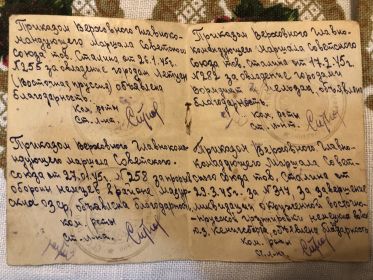 Приказом Верховного Главноко-
мандующего Маршала Советского
Союза тов. Сталина от 26.1.45г.
№ 255 за овладение городом Летцен
(Восточная Пруссия) объявлена
благодарность.
Ком. роты
ст. л-нт.
Приказом Верховного Главнокоман-
дующего маршала Советского.
союза от 27.01.45г. № 258 за прорыв
обороны немцев в районе Мазур-
ских озер, объявлена благодарность.
ком. роты
ст. л-нт.
Приказом Верховного Главно-
командующего Маршала Советского
Союза тов. Сталина от 17.2.45г.
за овладение городами
Вормдит и Мельзак, объявлена
благодарность.
Ком. роты
ст. л-нт.
Приказом Верховного Главно-
командующего Маршала Совет-
ского Союза тов. Сталина от
29.3.45г. за № 317 за завершение
ликвидации окруженной восточно-
прусской группировки немцев юго-
з. Кенигсберга, объявлена благодарность
ком. роты
ст. л-нт.